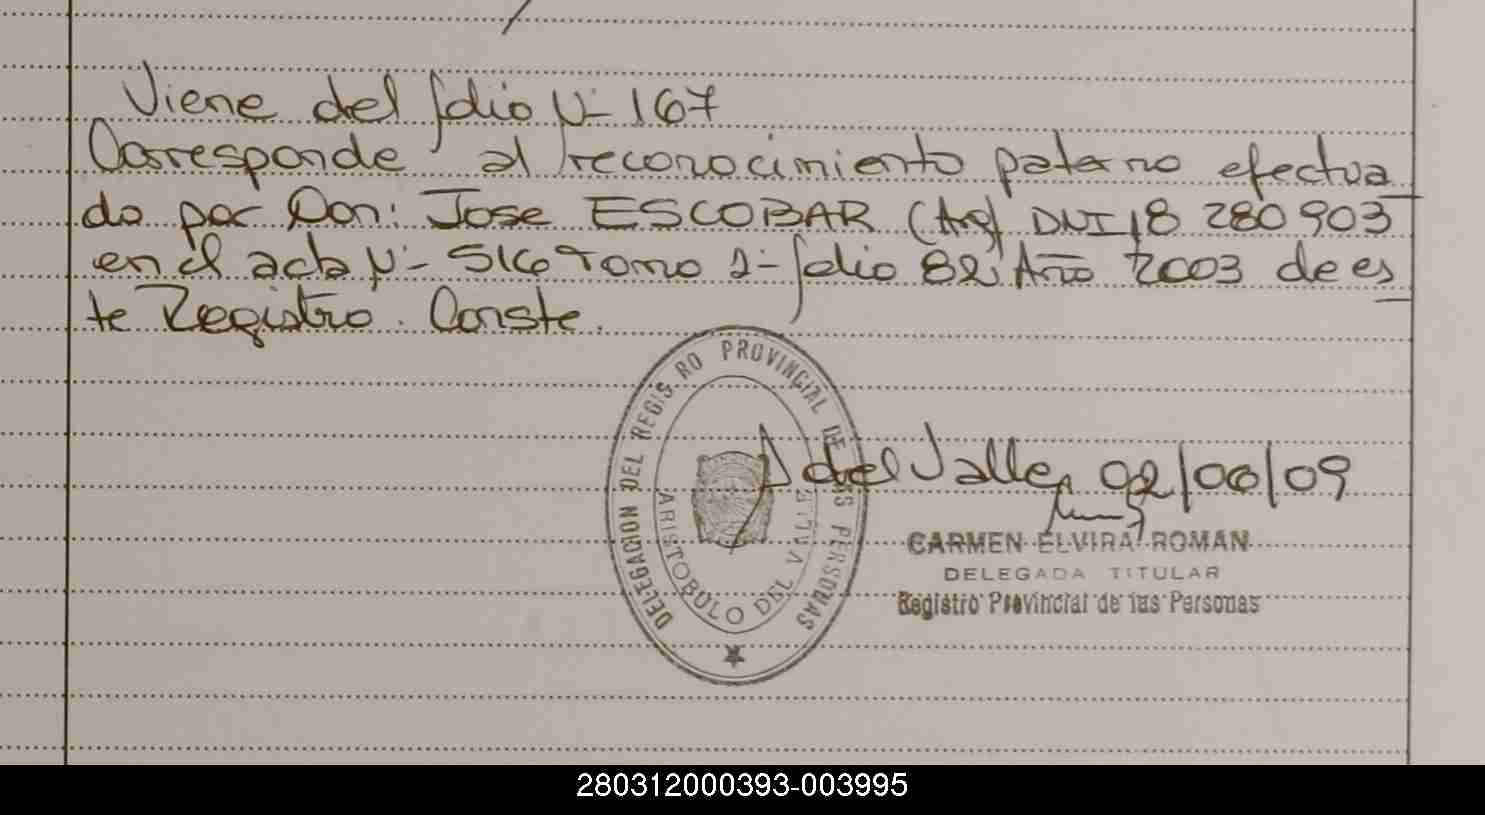 Viene del folio Nº 167
Corresponde al reconocimiento paterno efectua
do por Don: Jose ESCOBAR (Arg) DNI 18 280 903
en el acta Nº 516 Tomo 2º folio 82 Año 2003 de es
te Registro. Conste.
DELEGACION DEL REGIS RO PROVINCIAL DE LAS PERSONAS
ARISTOBULO DEL VALLE
A del Valle, 02/06/09
CARMEN ELVIRA ROMAN
DELEGADA TITULAR
Registro Provincial de las Personas
280312000393-003995